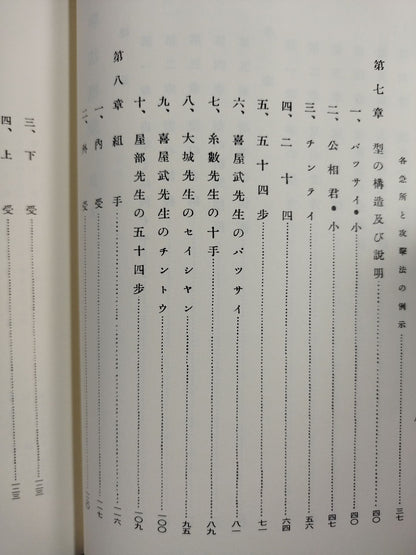 各急所と攻擊法の例示……三七
第七章 型の構造及び說明……四〇
一、バツサイ・小……四〇
二、公相君・小……四七
三、チンテイ……五六
四、二十四……六四
五、五十四步……七一
六、喜屋武先生のパツサイ……八一
七、糸數先生の十手……八九
八、大城先生のセイシヤン……九五
九、喜屋武先生のチントウ……一〇九
十、屋部先生の五十四步
第八章 組手……一一六
一、內受……一一七
二、外受……一二〇
三、下受
四、上受